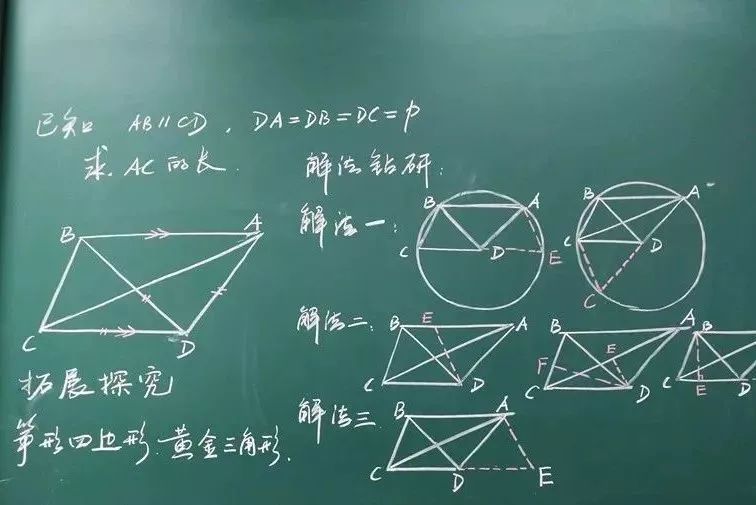 已知 AB∥CD，DA=DB=DC=p
求 AC的长
解法钻研:
解法一:
B A
C D E
B A
C D
C
B A
C D
解法二:
B E A
C D
B A
F E
C D
B
C E
拓展探究
筝形四边形. 黄金三角形.
解法三
B A
C D E